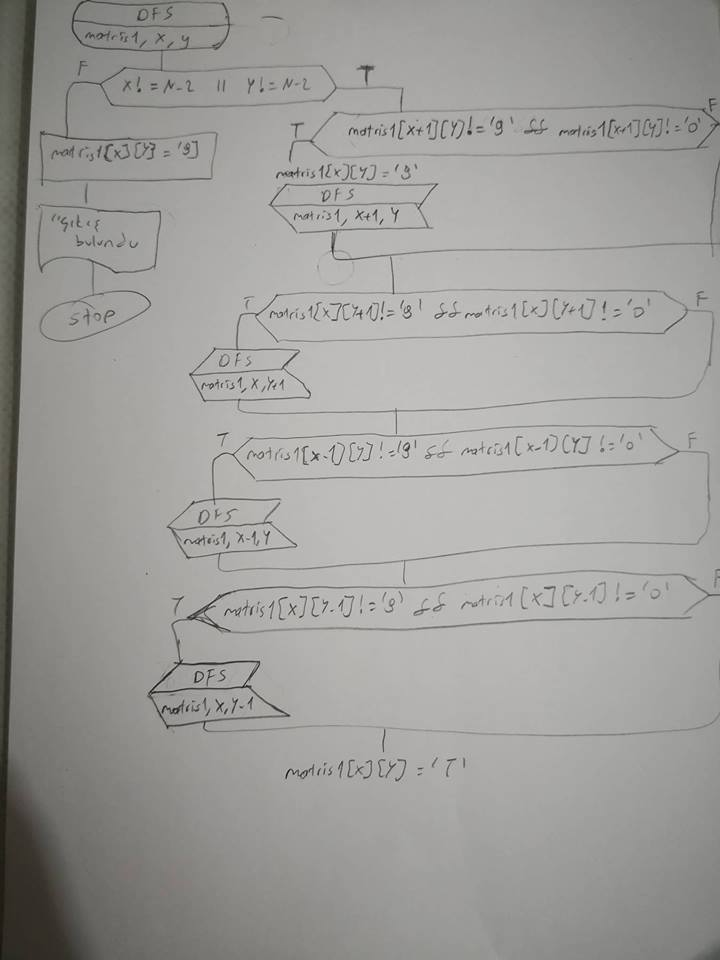 DFS
matris1, x, y
F
x! = N-2 || y! = N-2
T
matris1[x][y} = '9]
"Çıkış
bulundu
stop
T
matris1[x+1][y)! = '9' && matris1[x+1][y]! = '0'
F
matris1[x][y] = '9'
DFS
matris1, x+1, y
T
matris1[x][y+1]! = '9' && matris1[x][y+1]! = '0'
F
DFS
matris1, x, y+1
T
matris1[x-1)[y]! = '9' && matris1[x-1)[y]! = '0'
F
DFS
matris1, x-1, y
T
matris1[x][y-1]! = '9' && matris1[x][y-1]! = '0'
F
DFS
matris1, x, y-1
matris1[x][y] = 'T'